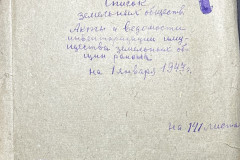 Список
земельных обществ.
Акты и ведомости
инвентаризации иму-
щества земельных об-
ществ района
на 1 января 1947 г.
на 141 листах